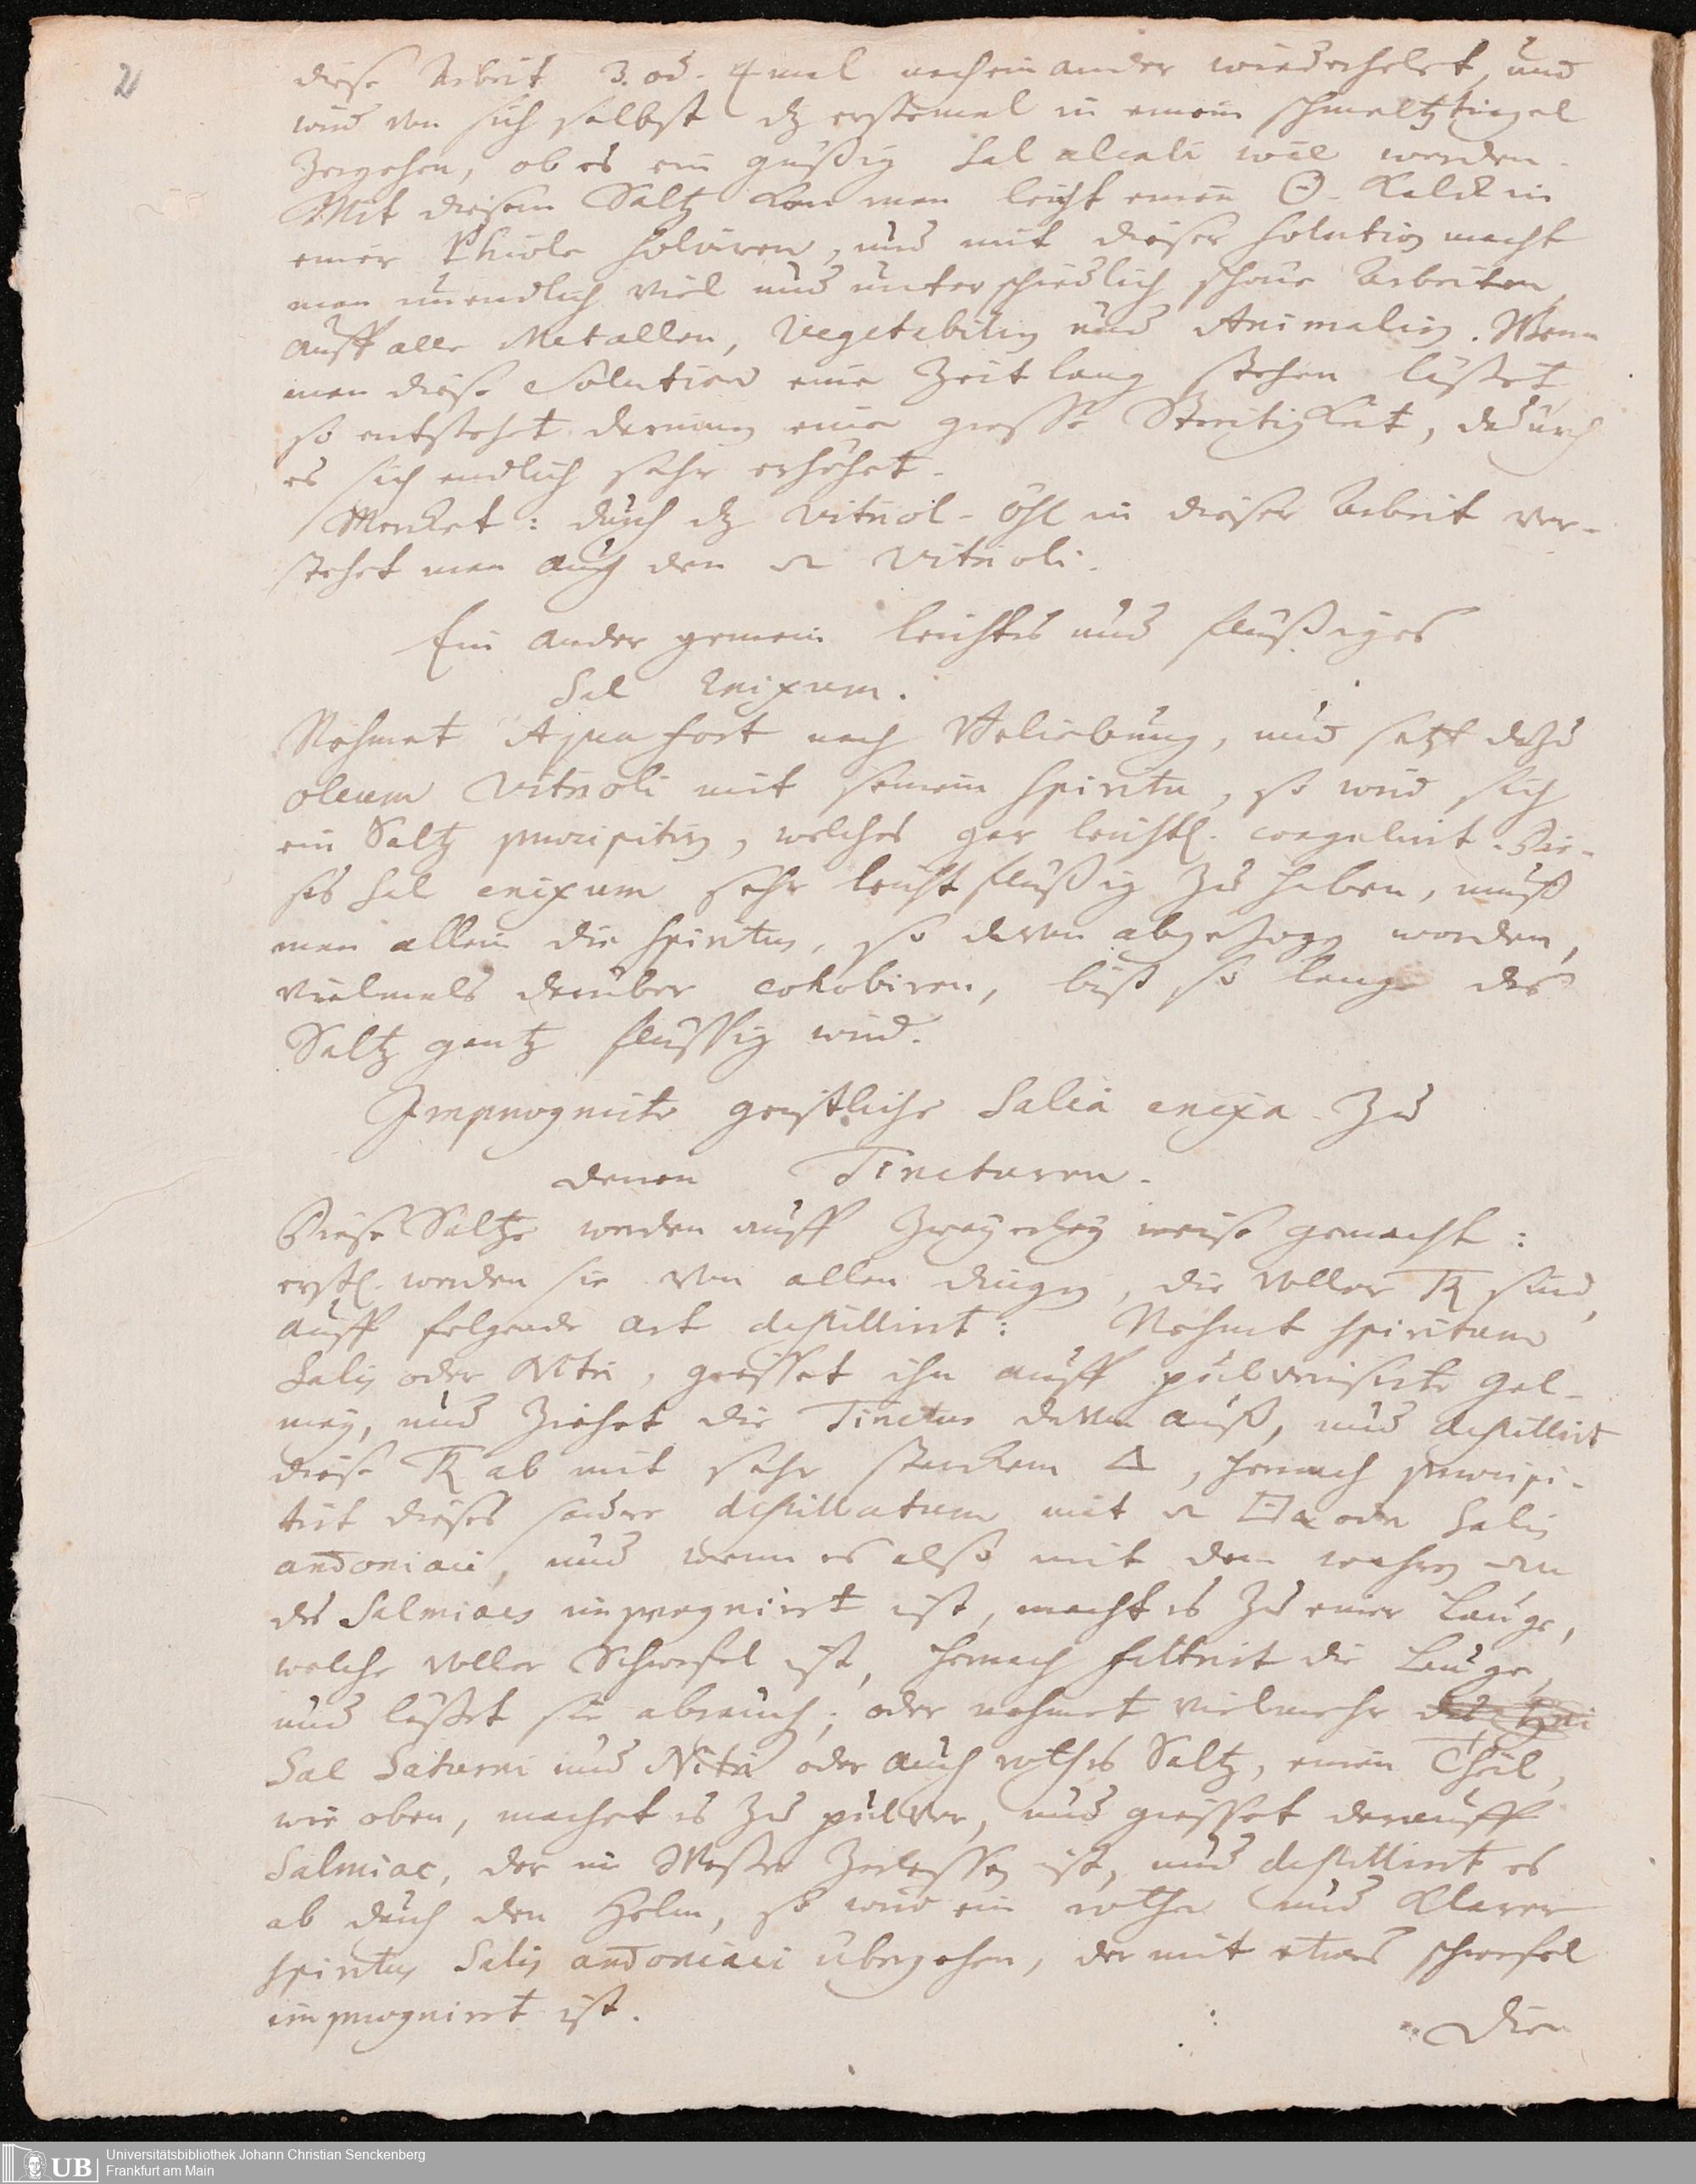 2
diese Arbeit 3. od. 4 mal nacheinander wiederholet, und
wird von sich selbst dz erstemal in einem schmeltztiegel
zergehen, ob es ein güßig Sal alcali wil werden.
Mit diesem Saltz kan man leicht einen ☉-Kalck in
einer Phiole solviren, und mit dieser solution macht
man unendlich viel und unterschiedlich schöne Arbeiten
auff alle Metallen, Vegetabilien und Animalien. Wenn
man diese Solution eine Zeitlang stehen läßet,
so entstehet darinnen eine grosse Streitigkeit, dadurch
es sich endlich sehr erhöhet.
Mercket: durch dz vitriol-öhl in dieser Arbeit ver-
stehet man auch den vitrioli.
Ein ander gemein leichtes und flüßiges
Sal enixum.
Nehmet Aqua fort nach Beliebung, und setzt dazu
oleum vitrioli mit seinem spiritu, so wird sich
ein Saltz praecipitiren, welches gar leichtl. coagulirt. Die-
ses Sal enixum sehr leicht flüßig zu haben, muß
man allein die spiritus, so davon abgezogen worden,
vielmals darüber cohobiren, biß so lange das
Saltz gantz flüssig wird.
Impraegnirte geistliche Salia enixa zu
denen Tincturen.
Diese Saltze werden auff zweyerley weise gemacht:
erstl. werden sie von allen dingen, die voller sind,
auff folgende art destillirt: Nehmet spiritum
Salis oder Nitri, giesset ihn auff pulverisirte Gal-
mey, und ziehet die Tinctur davon auß, und destillirt
diese ab mit sehr starckem △, hernach praecipi-
tirt dieses destillatum mit oder Salis
armoniaci, und wenn es also mit dem
des Salmiacs impraegnirt ist, macht es zu einer Lauge,
welche voller Schwefel ist, hernach filtrirt die Lauge,
und läßet sie abrauchen; oder nehmet vielmehr
Sal Saturni und Nitri oder auch rothes Saltz, einen Theil,
wie oben, machet es zu pulver, und giesset darauff
Salmiac, der in Wasser zerlassen ist, und destillirt es
ab durch den Helm, so wird ein rother und klarer
spiritus Salis armoniaci übergehen, der mit etwas schwefel
impraegnirt ist.
Die
UB
Universitätsbibliothek Johann Christian Senckenberg
Frankfurt am Main